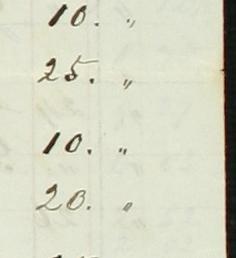 10. "
25. "
10. "
20. "